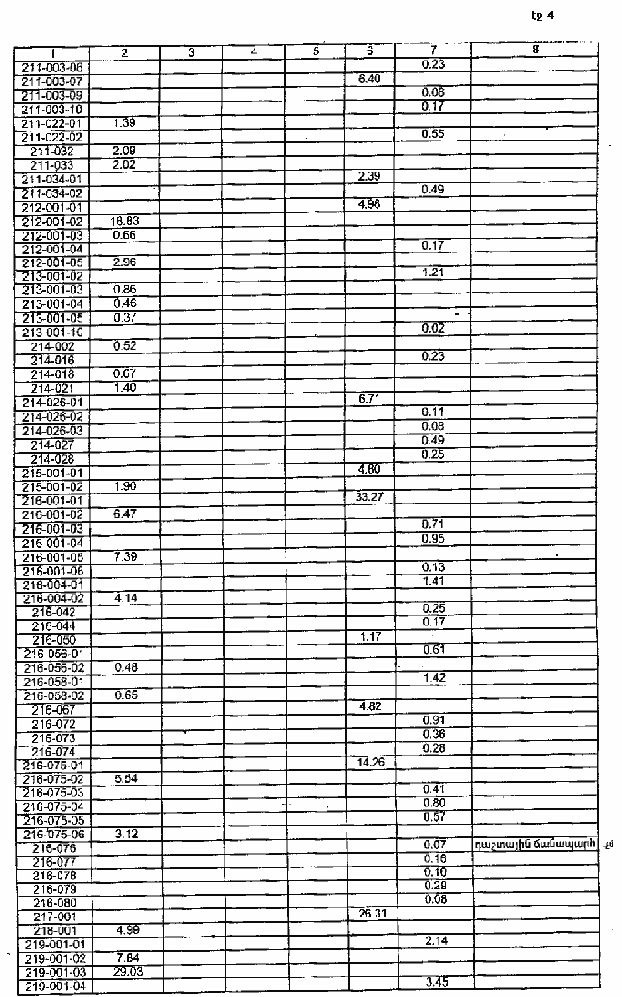 էջ 4
1 2 3 4 5 6 7 8
211-003-06 0.23
211-003-07 6.40
211-003-09 0.08
211-003-10 0.17
211-022-01 1.39
211-022-02 0.55
211-032 2.09
211-033 2.02
211-034-01 2.39
211-034-02 0.49
212-001-01 4.96
212-001-02 18.83
212-001-03 0.66
212-001-04 0.17
212-001-05 2.96
213-001-02 1.21
213-001-03 0.86
213-001-04 0.46
213-001-05 0.37
213-001-10 0.02
214-002 0.52
214-016 0.23
214-018 0.67
214-021 1.40
214-026-01 6.71
214-026-02 0.11
214-026-03 0.08
214-027 0.49
214-028 0.25
215-001-01 4.80
215-001-02 1.90
216-001-01 33.27
216-001-02 6.47
216-001-03 0.71
216-001-04 0.95
216-001-05 7.39
216-001-06 0.13
216-004-01 1.41
216-004-02 4.14
216-042 0.25
216-044 0.17
216-050 1.17
216-056-01 0.61
216-056-02 0.48
216-058-01 1.42
216-058-02 0.65
216-067 4.82
216-072 0.91
216-073 0.36
216-074 0.28
216-075-01 14.26
216-075-02 5.54
216-075-03 0.41
216-075-04 0.80
216-075-05 0.57
216-075-06 3.12
216-076 0.07 դաշտային ճանապարհ
216-077 0.16
216-078 0.10
216-079 0.29
216-080 0.08
217-001 26.31
218-001 4.99
219-001-01 2.14
219-001-02 7.64
219-001-03 29.03
219-001-04 3.45